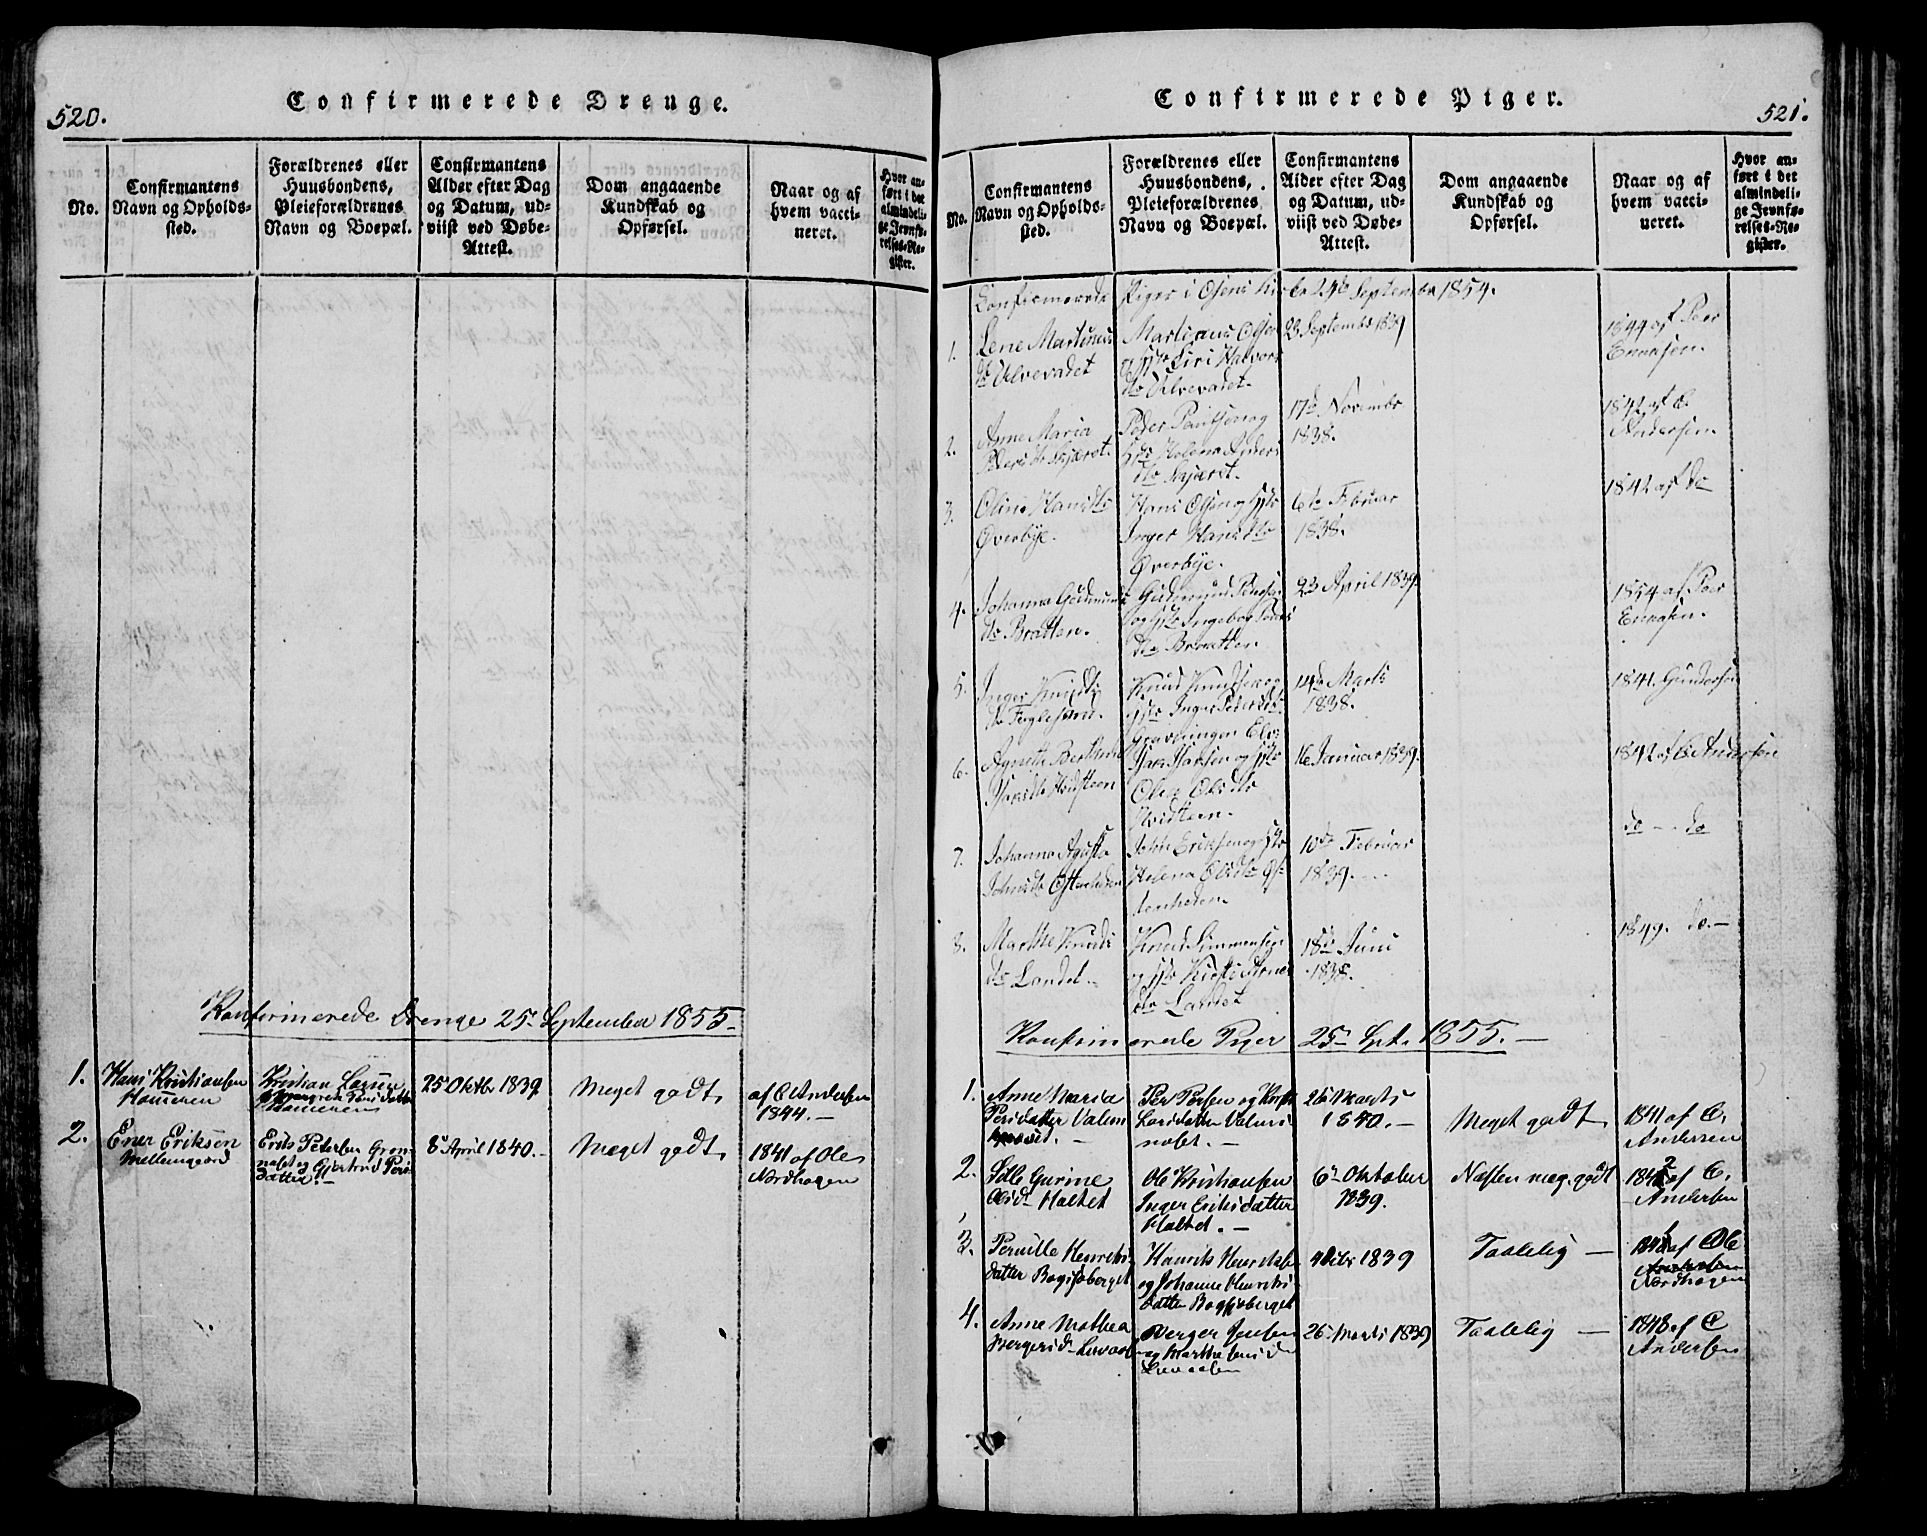 520.
Confirmerede Drenge.
No.
Confirmantens
Navn og Opholds-
sted.
Forældrenes eller
Huusbondens,
Pleieforældrenes
Navn og Boepæl.
Confirmantens
Alder efter Dag
og Datum, ud-
viist ved Døbe-
Attest.
Dom angaaende
Kundskab og
Opførsel.
Naar og af
hvem vacci-
neret.
Hvor an-
ført i det
almindeli-
ge Jevnfø-
relses-Re-
gister.
Konfirmerede Drenge 25de September 1855.
1.
Hans Kristiansen
Kristian
25de Oktbr. 1839
Meget godt
af C Andersen
1844.
2.
Ener Eriksen
Mellemgaard
Erik Petersen Grøn-
nolet og Gjertrud Pers
datter.
8de April 1840.
Meget godt
1841 af Ole
Nordhagen
Confirmerede Piger.
521.
No.
Confirmantens
Navn og Opholds-
sted.
Forældrenes eller
Huusbondens,
Pleieforældrenes
Navn og Boepæl.
Confirmantens
Alder efter Dag
og Datum, ud-
viist ved Døbe-
Attest.
Dom angaaende
Kundskab og
Opførsel.
Naar og af
hvem vacci-
neret.
Hvor an-
ført i det
almindeli-
ge Jevnfø-
relses-Re-
gister.
Confirmerede Piger i Osens Kirke 24de September 1854.
1.
Lene Martinus
dtr Ulvevadet
Martinus Olsen
og Hstr Siri Halvors
dtr Ulvevadet.
23 Septembr 1839
1844 af Peer
Enersen.
2.
Anne Maria
Peders dtr Skjæret.
Peder Paulsen og
Hstr Helena
dtr Skjæret.
17de Novembr
1838.
1842 af C.
Andersen.
3.
Oline Hansdtr
Øverbye.
Hans Olsen og Hstr
Inger Hansdtr
Øverbye.
6te Februar
1838.
1842 af do
4.
Johanna Gudmunds
dtr Bratten.
Gudmund Peders
og Hstr Ingebor Peders
dtr Bratten.
23 April 1839
1854 af Peer
Enersen.
5.
Inger Knuds
dtr Fuglesand.
Knud Knudsen og
Hstr Inger Pedersdtr
14de Marts
1838.
1841. Gundersen
6.
Agnethe Berthine
Hvidsteen
Isak Isaksen og Hstr
Olea Olsdtr
Hvidsteen.
16 Januar 1839.
1842 af C. Andersen
7.
Johanna Agusta
Johnsdtr Østenheden
John Eriksen og Hstr
Helena Olsdtr Øs-
tenheden.
10de Februar
1839.
do - do
8.
Marthe Knuds
dtr Landet.
Knud Simmensen
og Hstr Kjersti Arnes
dtr Landet
18de Juni
1838.
1849. do.
Konfirmerede Piger 25de Spt. 1855.
1.
Anne Maria
Persdatter Valm
Per Persen og
Larsdatter Valmsi
nolet.
26de Marts
1840.
Meget godt
1841 af C.
Andersen
2.
Sille Gurine
Olsd. Haltet
Ole Kristiansen
Inger Eriksdatter
Haltet.
6te Oktober
1839.
Næsten meg. godt
1842 af C.
Andersen
3.
Pernille Henriks-
datter Bagisberget
Henrik Henriksen
og Johanne Henriks
datter Bagisberget
4 1839
Taalelig
af Ole
Nordhagen
4.
Anne Mathea
Bergersd. Levaasen
Berger Jensen
og Marthe Jensd.
Levaasen
26de Marts 1839
Taalelig
1848 af C
Andersen